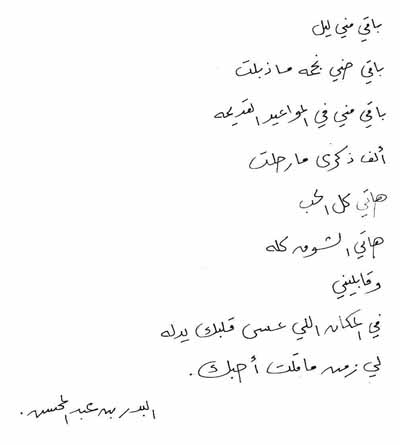 باقي مني ليل
باقي ضي نجمه ما ذبلت
باقي مني في المواعيد القديمه
ألف ذكرى ما رحلت
هاتي كل الحب
هاتي الشوق كله
وقابليني
في المكان اللي عسى قلبك يدله
لي زمن ما قلت أحبك .
البدر بن عبد المحسن .